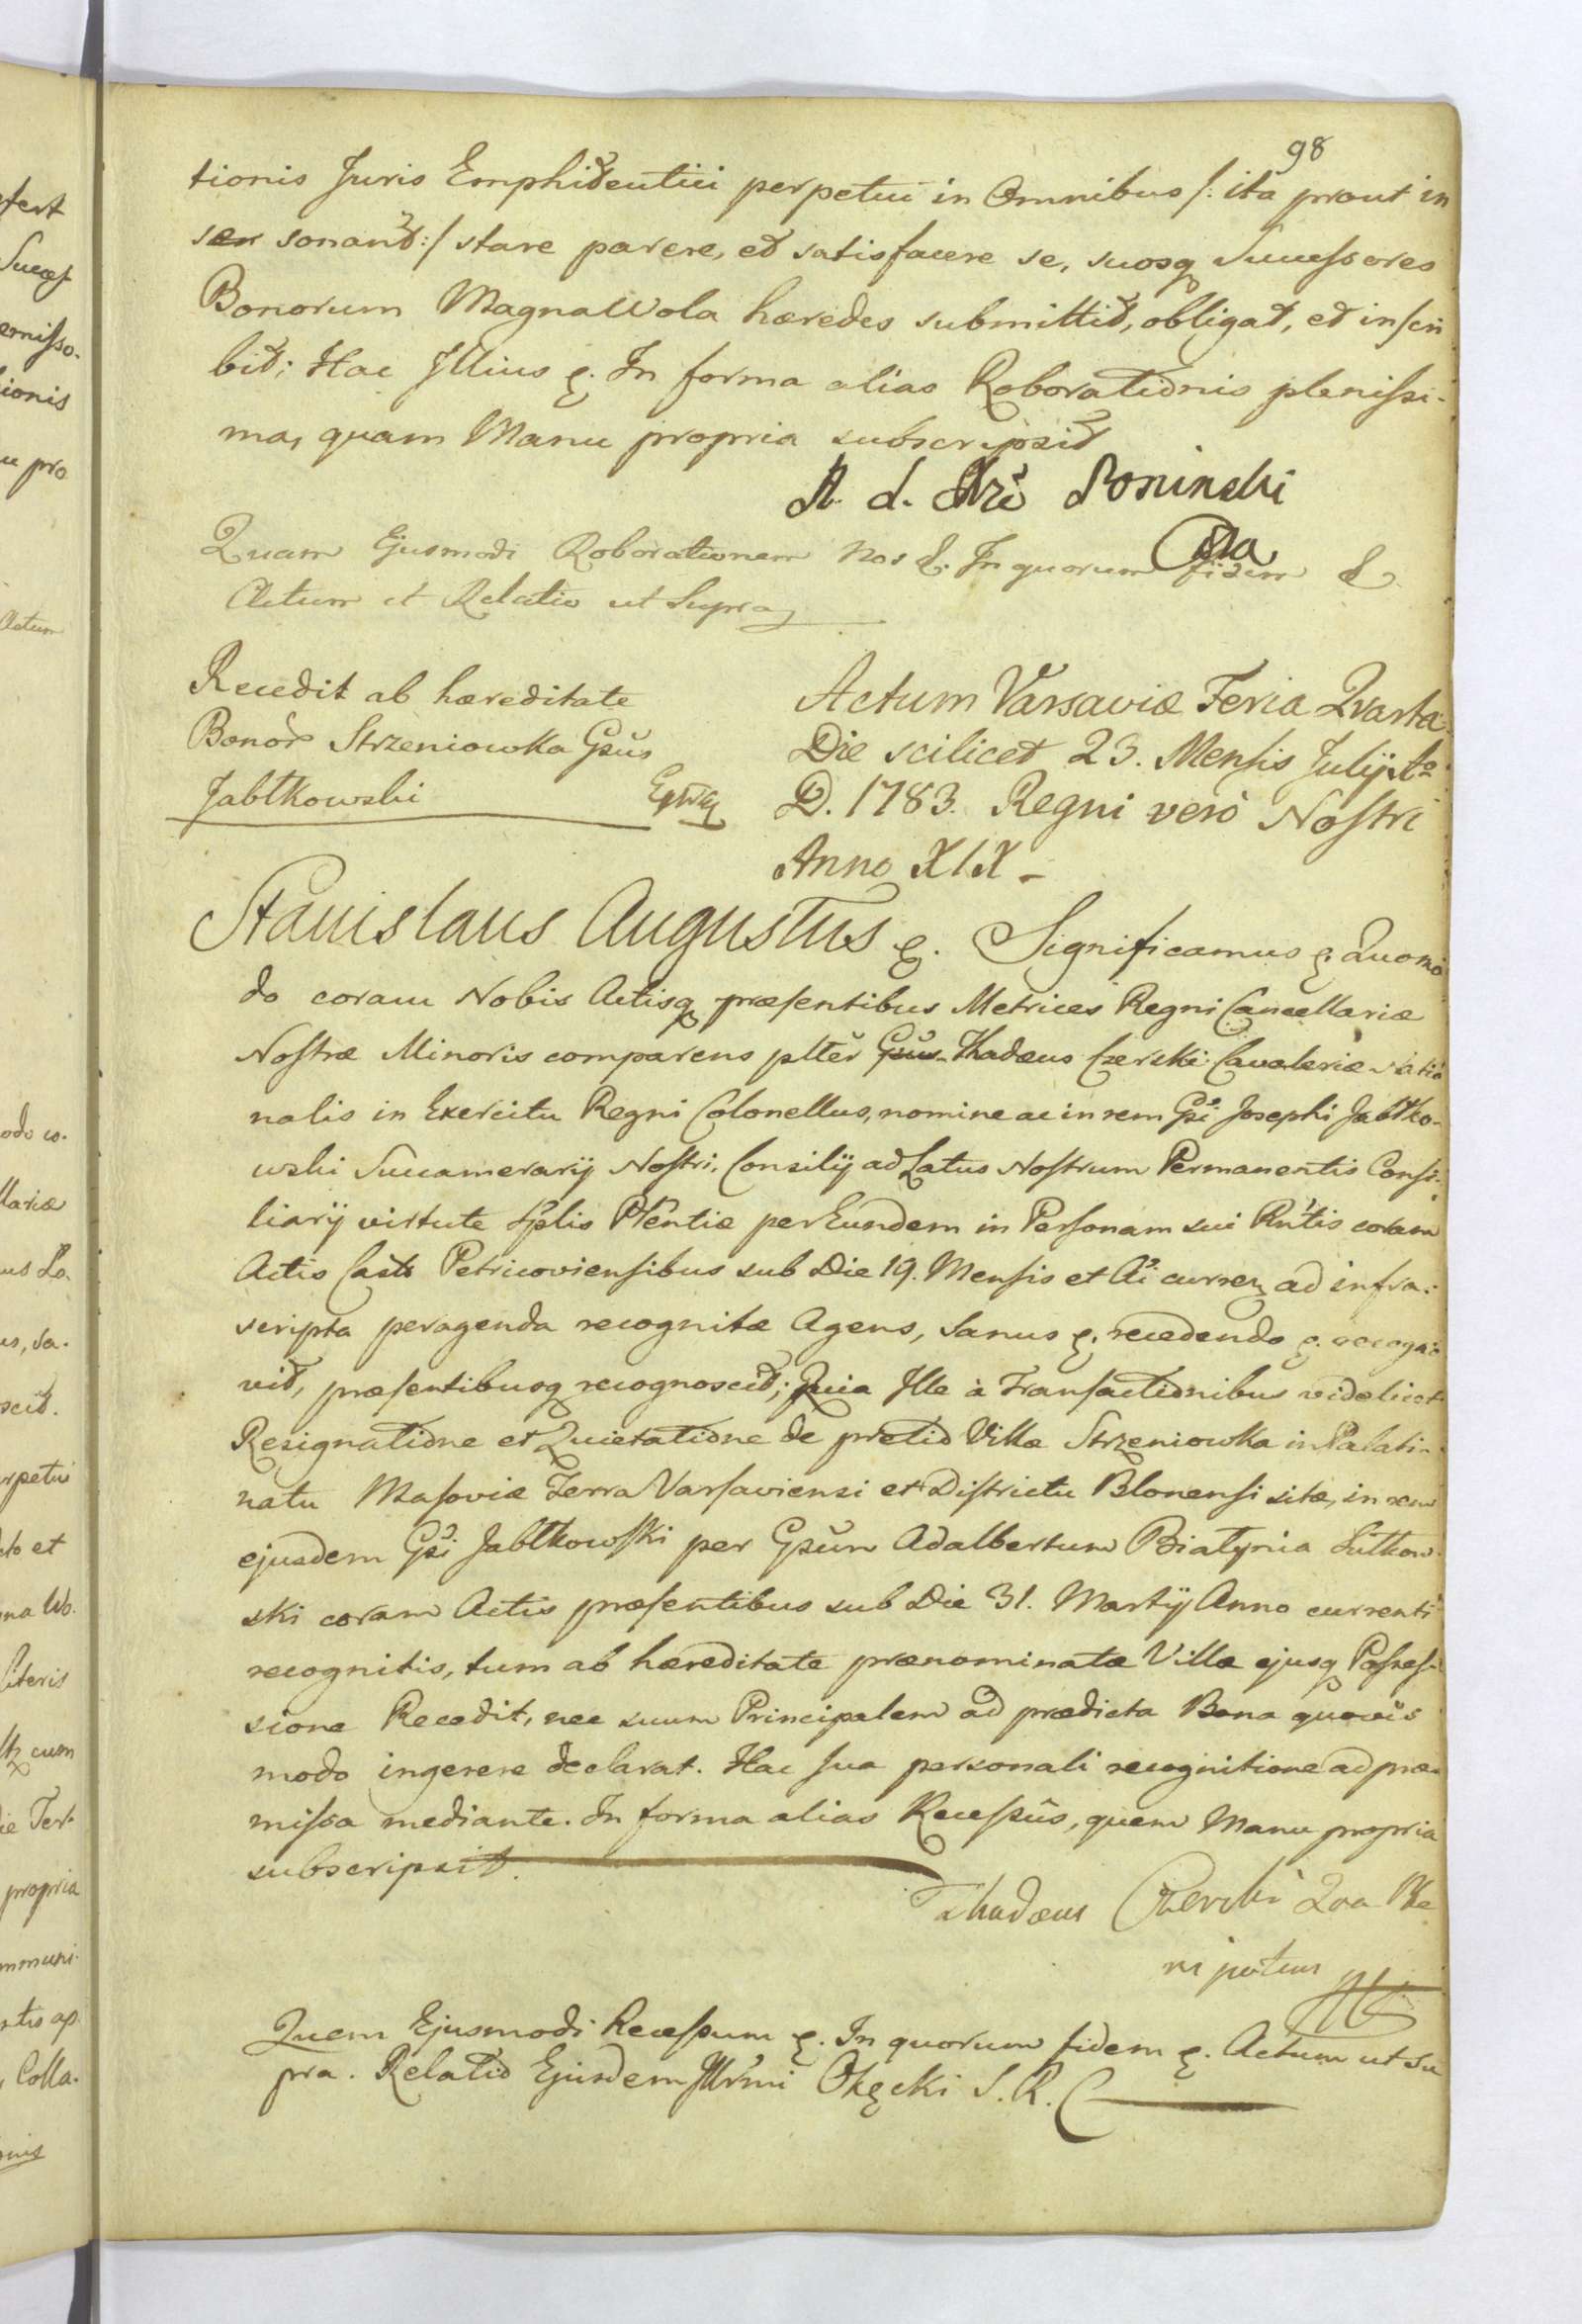 98
tionis Juris Emphiteutici perpetui in Omnibus /: ita prout in
se sonant :/ stare parere, et satisfacere se, suosq Successores
Bonorum Magna Wola hæredes submittit, obligat, et inscri
bit; Hac Illius &. In forma alias Roborationis plenissi-
ma, quam Manu propria subscripsit
A. d. Poninski
Quam Ejusmodi Roborationem Nos &. In quorum fidem &
Actum et Relatio ut Supra
Recedit ab hæreditate
Bonor Strzeniowka Gsus
Jabłkowski
Actum Varsaviæ Feria Qvarta
Die scilicet 23. Mensis Julij Ao
D. 1783. Regni verò Nostri
Anno XIX -
Stanislaus Augustus &. Significamus &. Quomo
do coram Nobis Actisq præsentibus Metrices Regni Cancellariæ
Nostræ Minoris comparens plter Gsus Thadæus Czerski Cavaleriæ Natio
nalis in Exercitu Regni Colonellus, nomine ac in rem Gsi Josephi Jabłko-
wski Succamerarij Nostri, Consilij ad Latus Nostrum Permanentis Consi-
liarij virtute splis Pltentiæ per Eundem in Personam sui Rntis coram
Actis Castr Petricoviensibus sub Die 19. Mensis et Ai curren ad infra-
scripta peragenda recognitæ Agens, Sanus &. recedendo &. recogno
vit, præsentibusq recognoscit; Quia Ille à Transactionibus videlicet
Resignatione et Quietatione de pretio Villæ Strzeniowka in Palati-
natu Masoviæ Terra Varsaviensi et Districtu Blonensi sitæ, in rem
ejusdem Gsi Jabłkowski per Gsum Adalbertum Białynia Lutkow
ski coram Actis præsentibus sub Die 31. Martij Anno currenti
recognitis, tum ab hæreditate prænominatæ Villæ ejusq Posses-
sione Recedit, nec suum Principalem ad prædicta Bona quovis
modo ingerere declarat. Hac sua personali recognitione ad præ-
missa mediante. In forma alias Recessûs, quem Manu propria
subscripsit.
Thadæus Czerski Qua Ple
nipotens
Quem Ejusmodi Recessum &. In quorum fidem &. Actum ut Su
pra. Relatio Ejusdem Illrmi Okęcki S. R.